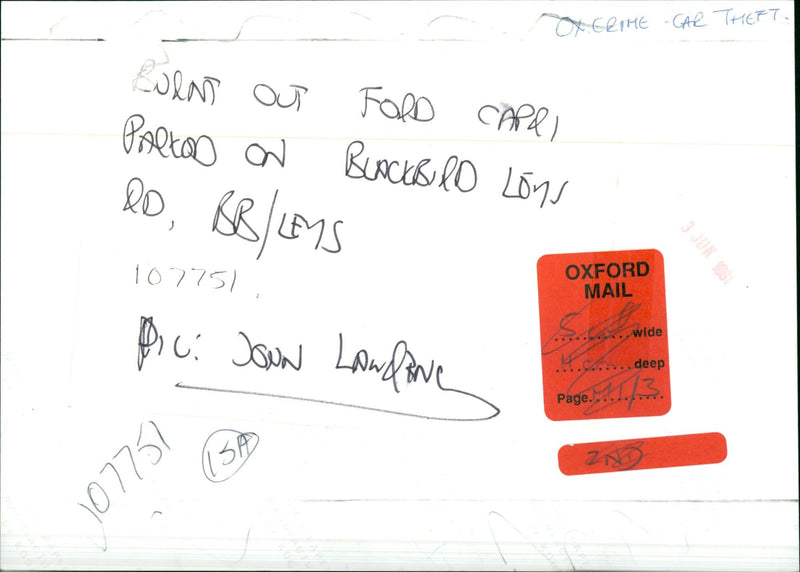 OX. CRIME - CAR THEFT.
BURNT OUT FORD CAPRI
PARKED ON BLACKBIRD LEYS
RD, BB/LEYS
107751.
PIC: JOHN LAWRENC
3 JUN 1991
OXFORD
MAIL
5 wide
deep
Page M1/3
2ND
107751
15A